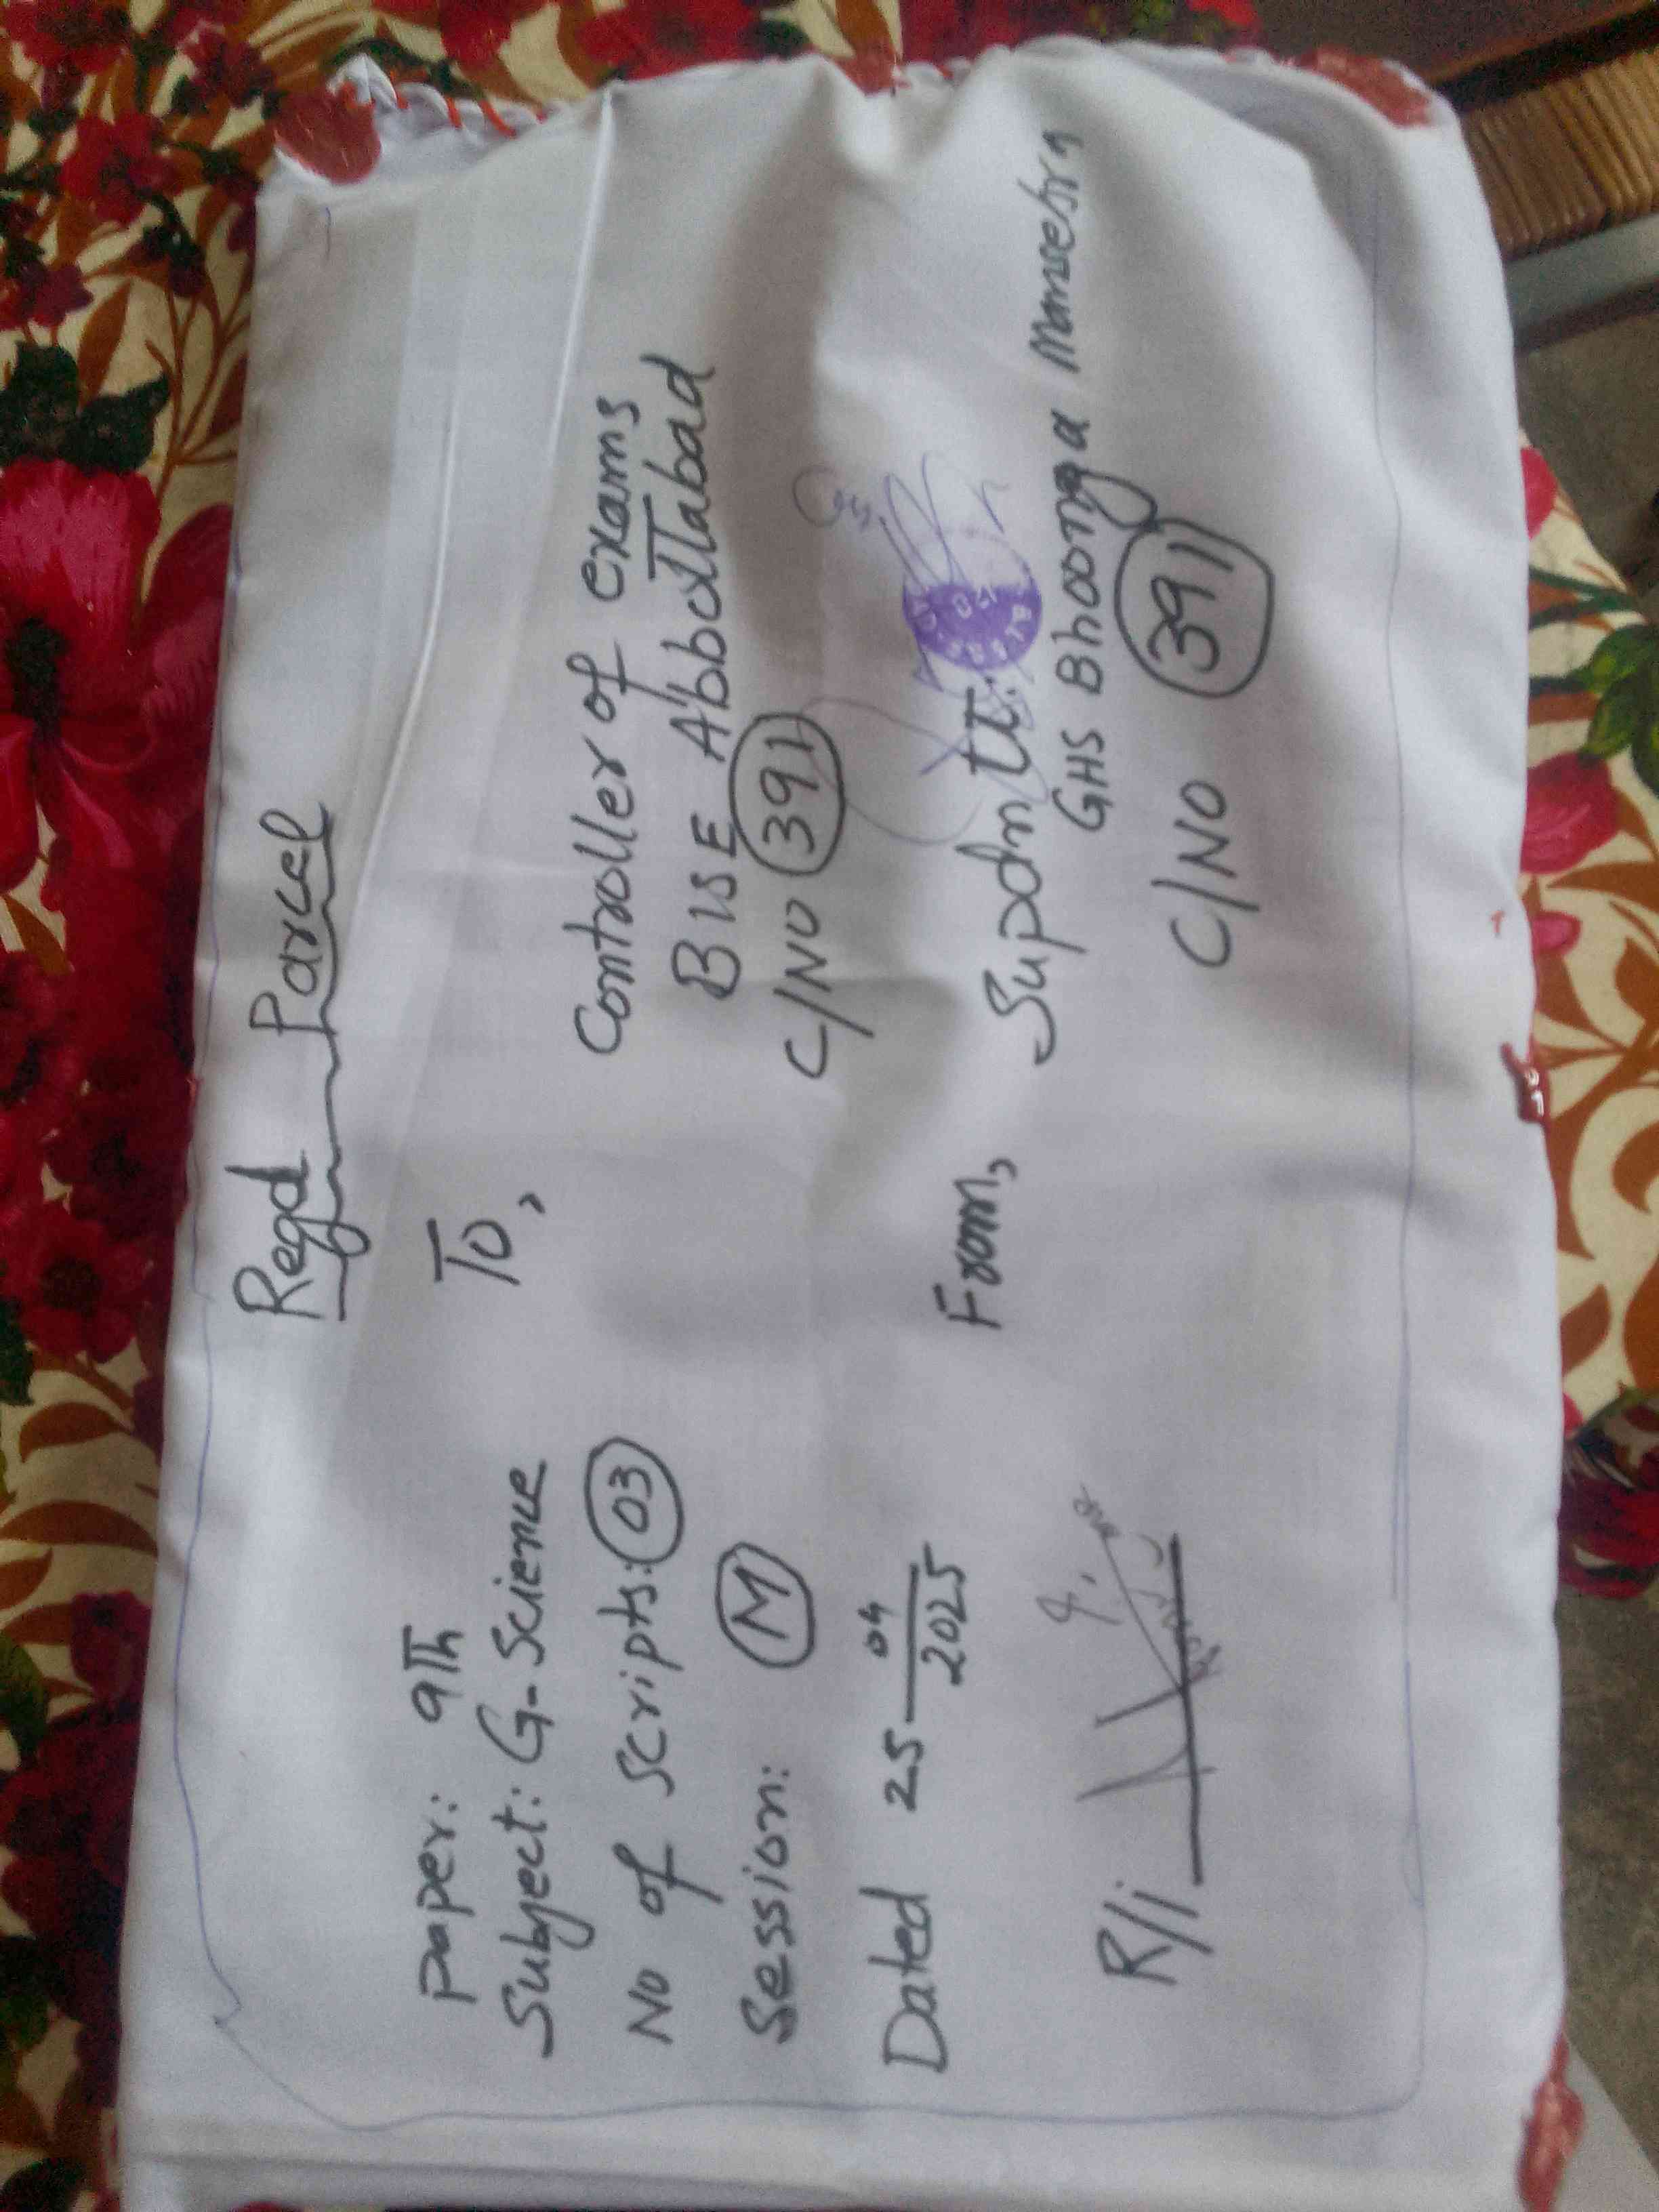 Regd Parcel
Paper: 9Th
Subject: G-Science
No of Scripts: 03
Session: M
Dated 25 04/2025
R/i
To,
Controller of exams
BISE AbboTTabad
C/NO 391
From,
Supdntt.
GHS Bhoonga Mansehra
C/NO 391